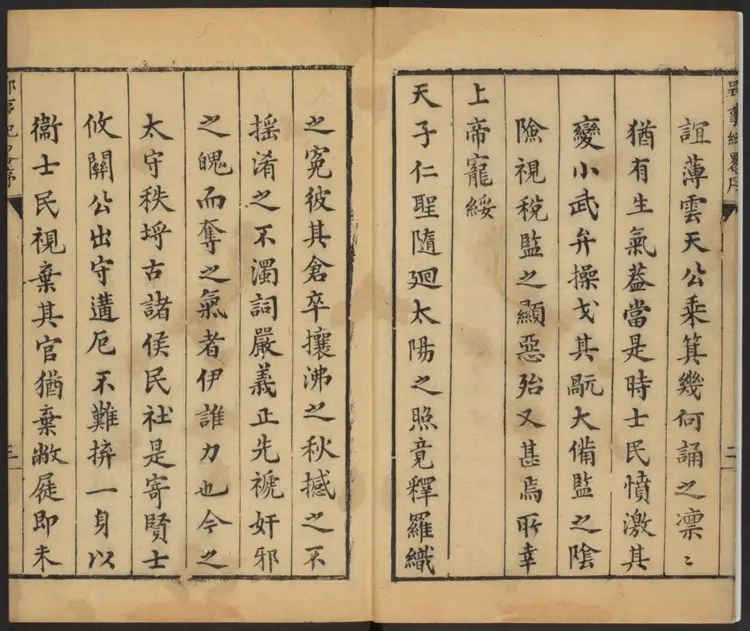 誼薄雲天公乘箕幾何誦之凛〻
猶有生氣葢當是時士民憤激其
變小武弁操戈其翫大備監之陰
險視稅監之顯惡殆又甚焉所幸
上帝寵綏
天子仁聖隨廻太陽之照竟釋羅織
二
之寃彼其倉卒攘沸之秋撼之不
揺淆之不濁詞嚴義正先褫奸邪
之魄而奪之氣者伊誰力也今之
太守秩埒古諸侯民社是寄賢士
攸關公出守遘厄不難捹一身以
衞士民視棄其官猶棄敝屣即未
三